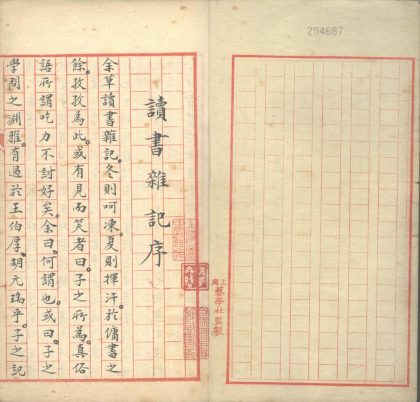 294687
上海
藝學社監製
讀書雜記序
余草讀書雜記。冬則呵凍。夏則揮汗。於傭書之
餘。孜孜為此。或有見而笑者曰。子之所為。真俗
語所謂吃力不討好矣。余曰。何謂也。或曰。子之
學問之淵雅。有過於王伯厚。胡元瑞乎。子之記